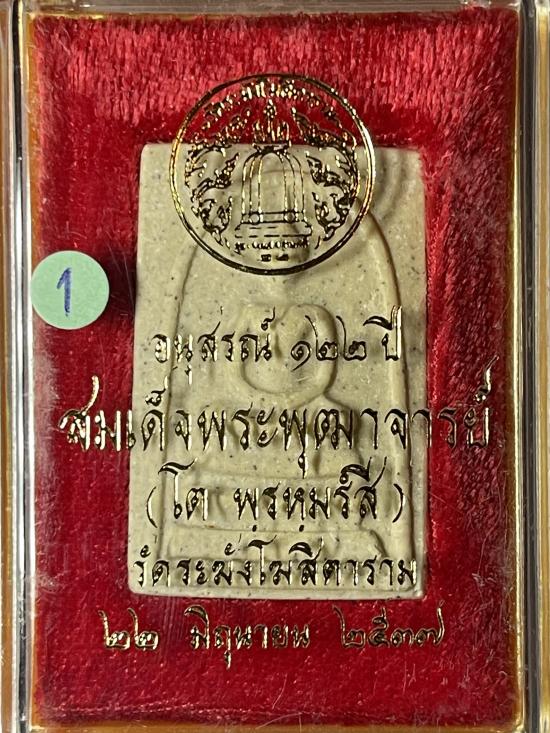 1
อนุสรณ์ ๑๒๒ ปี
สมเด็จพระพุฒาจารย์
(โต พฺรหฺมรํสี)
วัดระฆังโฆสิตาราม
๒๒ มิถุนายน ๒๕๓๗